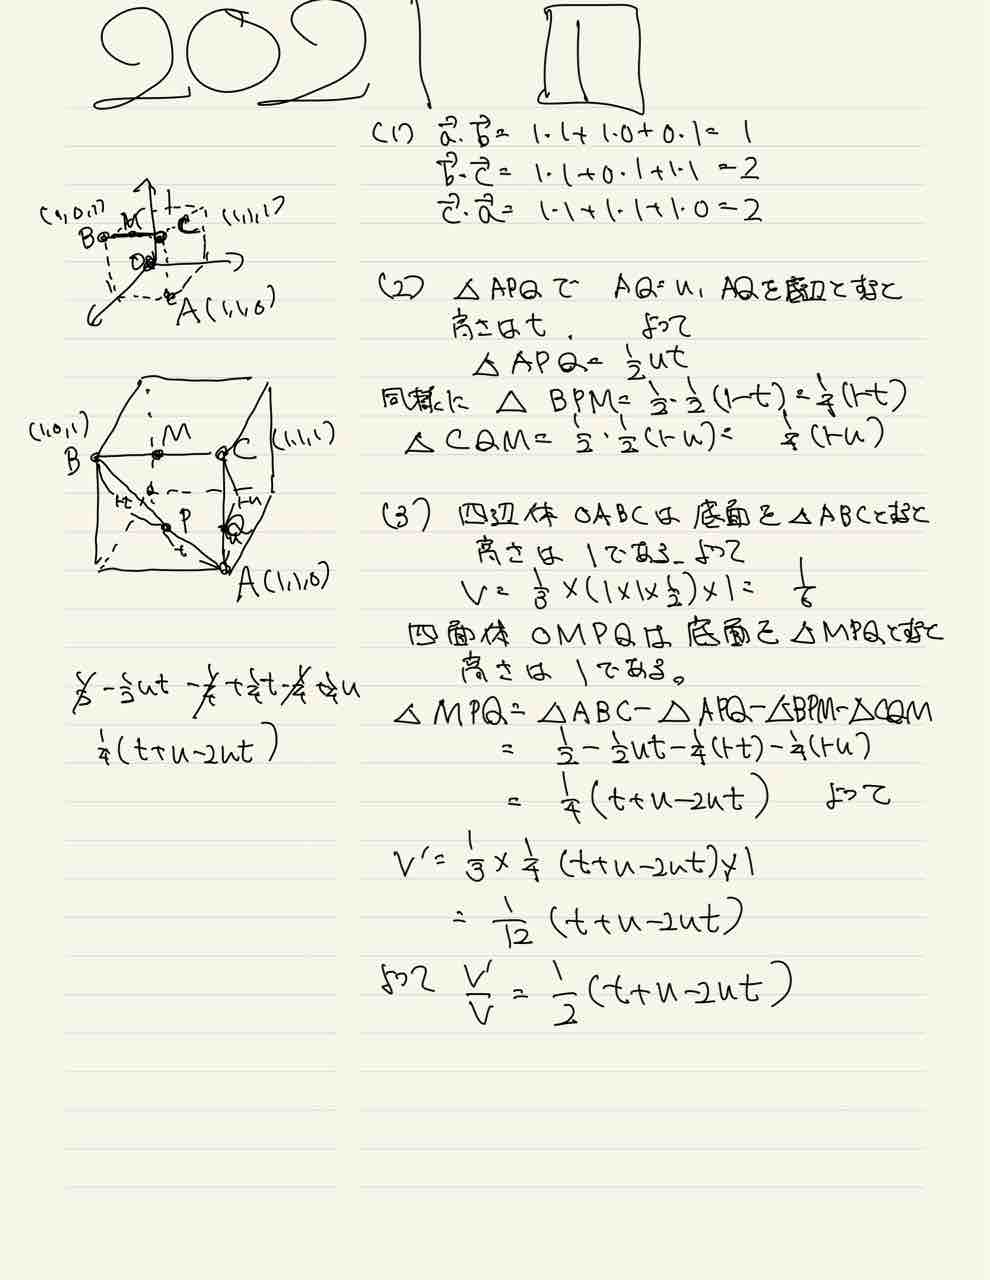 2021 1
(1) a⃗・b⃗ = 1・1+1・0+0・1=1
b⃗・c⃗ = 1・1+0・1+1・1=2
c⃗・a⃗ = 1・1+1・1+1・0=2
(1,0,1) M C (1,1,1)
B
O
A(1,1,0)
(2) △APQで AQ=u, AQを底辺とすると
高さはt. よって
△APQ= 1/2 ut
同様に △BPM= 1/2・1/2(1-t)=1/4(1-t)
△CQM= 1/2・1/2(1-u)= 1/4(1-u)
(1,0,1) M C (1,1,1)
B
1-t 1-u
P Q
t
A(1,1,0)
(3) 四辺体OABCは底面を△ABCとすると
高さは1である. よって
V= 1/3×(1×1×1/2)×1= 1/6
四面体OMPQは底面を△MPQとすると
高さは1である。
△MPQ=△ABC-△APQ-△BPM-△CQM
= 1/2-1/2ut-1/4(1-t)-1/4(1-u)
= 1/4(t+u-2ut) よって
1/2-1/2ut-1/4+1/4t-1/4+1/4u
1/4(t+u-2ut)
V'= 1/3×1/4(t+u-2ut)×1
= 1/12(t+u-2ut)
よって V'/V = 1/2(t+u-2ut)